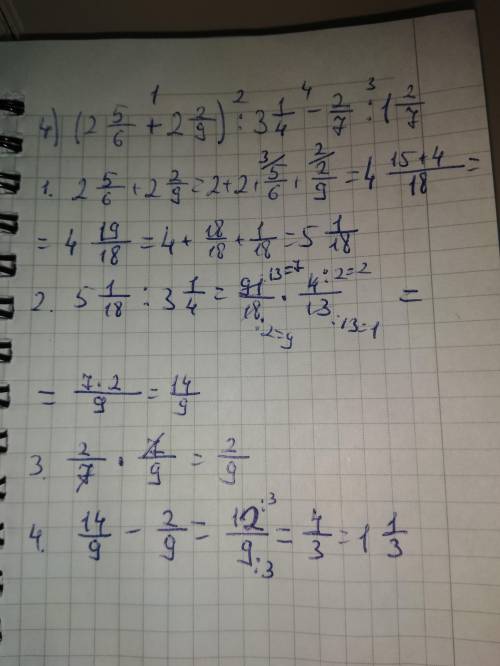 4) (2 5/6 +¹ 2 2/9) :² 3 1/4 −⁴ 2/7 :³ 1 2/7
1. 2 5/6 + 2 2/9 = 2+2+ ³⁄5/6 + ²⁄2/9 = 4 15+4/18 =
= 4 19/18 = 4 + 18/18 + 1/18 = 5 1/18
2. 5 1/18 : 3 1/4 = 91:13=7/18:2=9 · 4:2=2/13:13=1 =
= 7·2/9 = 14/9
3. 2/7 · 7/9 = 2/9
4. 14/9 − 2/9 = 12:3/9:3 = 4/3 = 1 1/3